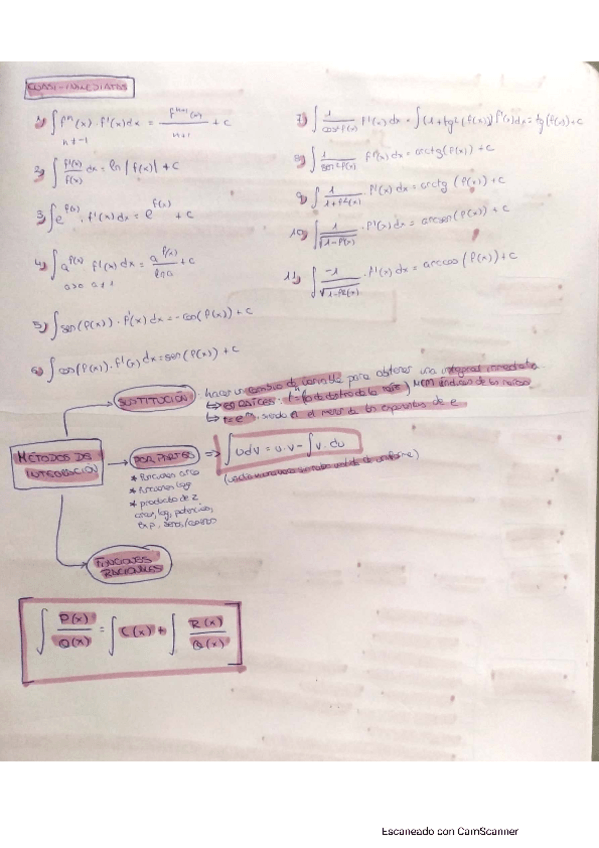 CUASI-INMEDIATAS
1) ∫ fⁿ(x) · f'(x) dx = fⁿ⁺¹(x) / n+1 + C
n ≠ -1
2) ∫ f'(x)/f(x) dx = ln |f(x)| + C
3) ∫ e^f(x) · f'(x) dx = e^f(x) + C
4) ∫ a^f(x) f'(x) dx = a^f(x) / ln a + C
a>0 a ≠ 1
5) ∫ sen(f(x)) · f'(x) dx = -cos(f(x)) + C
6) ∫ cos(f(x)) · f'(x) dx = sen(f(x)) + C
7) ∫ 1/cos²f(x) f'(x) dx = ∫ (1+tg²(f(x))) f'(x) dx = tg(f(x)) + C
8) ∫ 1/sen²f(x) f'(x) dx = arctg(f(x)) + C
9) ∫ 1/1+f²(x) · f'(x) dx = arctg (f(x)) + C
10) ∫ 1/√1-f(x) · f'(x) dx = arcsen(f(x)) + C
11) ∫ -1/√1-f²(x) · f'(x) dx = arccos (f(x)) + C
MÉTODOS DE
INTEGRACIÓN
SUSTITUCIÓN : hacer un cambio de variable para obtener una integral inmediata
↳ en RAÍCES: tⁿ = (lo de dentro de la raíz) MCM índices de las raíces
↳ t = eⁿˣ, siendo n el menor de los exponentes de e
POR PARTES ⇒ ∫ u dv = u · v - ∫ v · du
(un día vi una vaca sin rabo vestida de uniforme)
* funciones arco
* funciones log
* producto de 2
arcos, log, potencias,
exp, senos/cosenos
FUNCIONES
RACIONALES
∫ P(x)/Q(x) = ∫ C(x) + ∫ R(x)/Q(x)
Escaneado con CamScanner